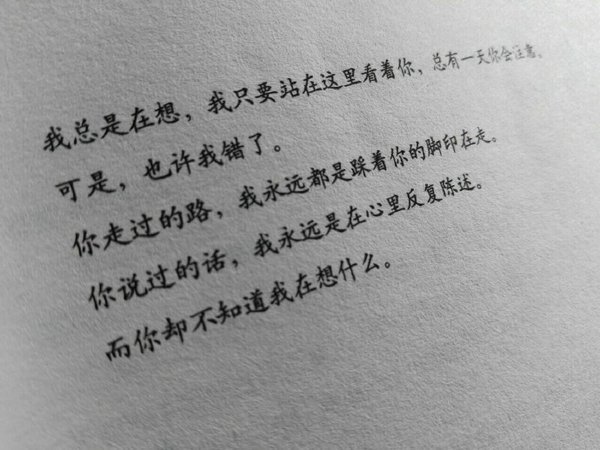 我总是在想，我只要站在这里看着你，总有一天你会注意。
可是，也许我错了。
你走过的路，我永远都是踩着你的脚印在走。
你说过的话，我永远是在心里反复陈述。
而你却不知道我在想什么。